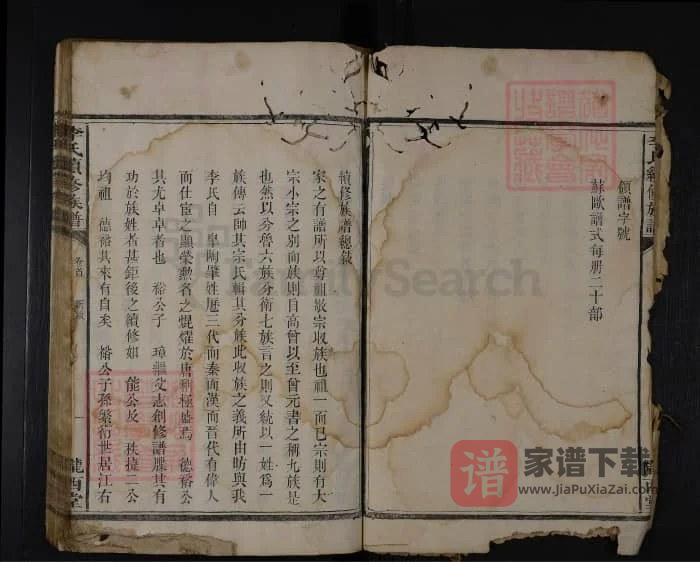 李氏續修族譜
領譜字號
蘇歐譜式每册二十部
續修族譜總敍
家之有譜所以尊祖敬宗收族也祖一而已宗則有大
宗小宗之別而族則目高曾以至曾元書之稱九族是
也然以分魯六族分衛七族言之則又統以一姓為一
族傳云師其宗氏輯其分族此收族之義所由昉與我
李氏自 皐陶肇姓歷三代而秦而漢而晉代有偉人
而仕宦之顯榮勲名之焜燿於唐 極盛焉 德裕公
其尤卓卓者也 裕公子 璋 父志創修譜牒其有
功於族姓者甚鉅後之續修如 能公及 秩 二公
均祖 德裕其來有自矣 裕公子孫繁衍世居江右
李氏續修族譜
卷首
一
隴西堂
FamilySearch
譜
家谱下载
www.JiaPuXiaZai.com